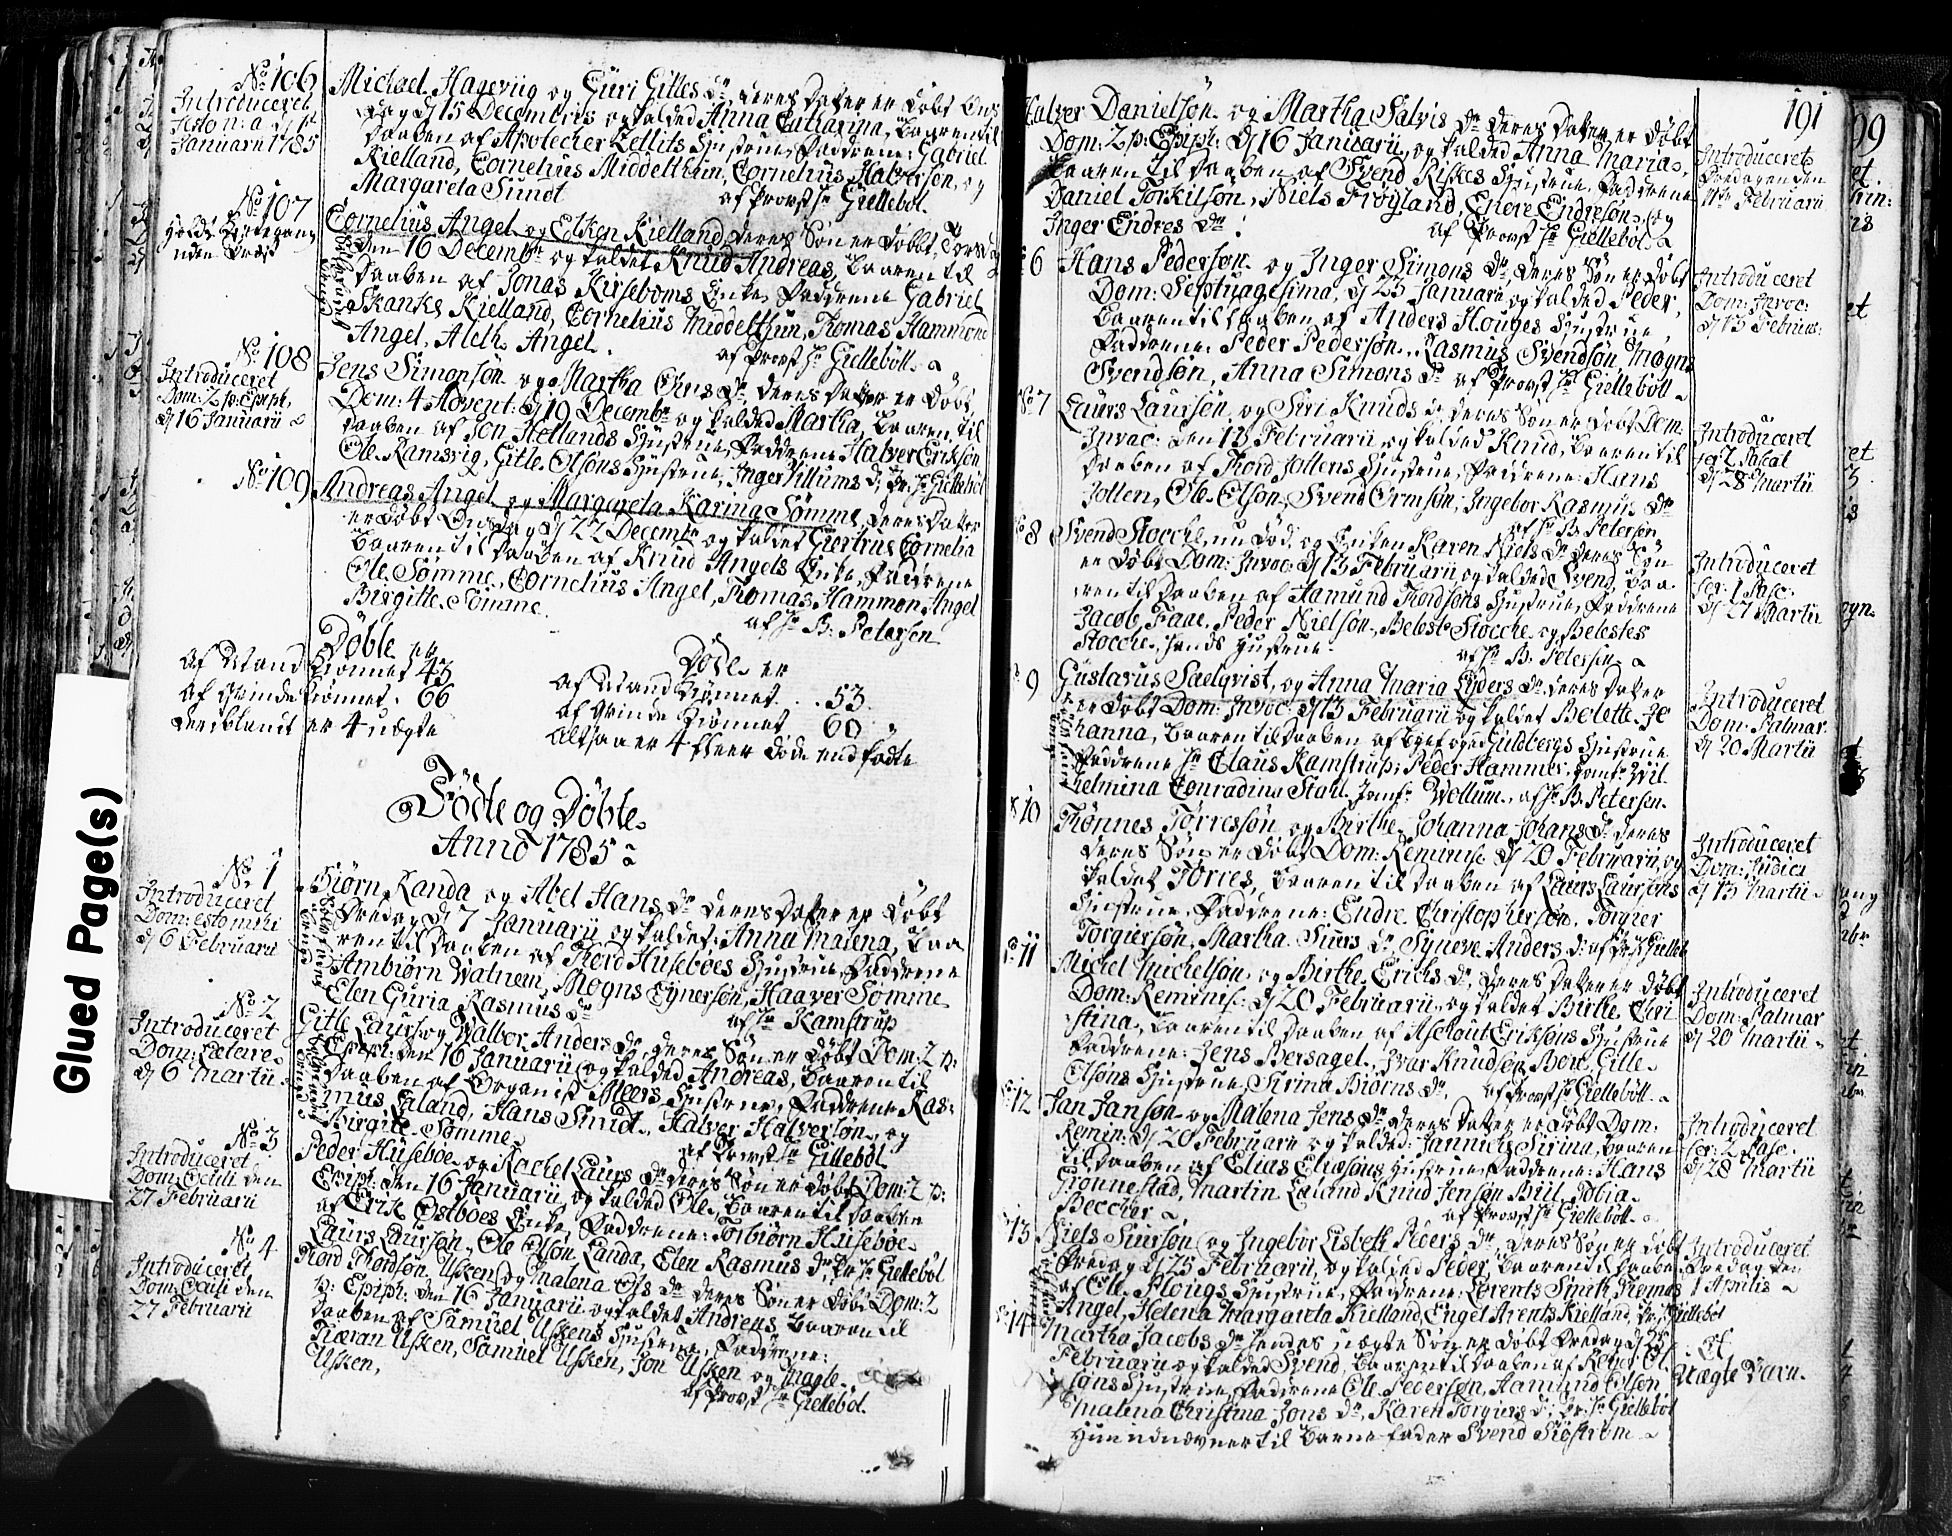 No 106
Introduceret
Festo n: a: d 1ste
Januarii 1785
Michael Hageviig og Güri Gitles Dr deres Datter er Döbt Ons
dag d 15 Decembris og kalded Anna Catharina, Baaren til
Daaben af Apotecher Zetlits Hustrue, Faddrene: Gabriel
Kielland, Cornelius Middelthun, Cornelius Halversøn, og
Margareta Sundt
af Provst Hr Giellebøl.
No 107
uden Præst
Cornelius Angel og Elken Kielland deres Søn er Døbt Torsdag
den 16 Decembr og kaldet Knud Andreas, Baaren til
Daaben af Jonas Kirseboms Enke, Faddrene Gabriel
Skanke Kielland, Cornelius Middelthun, Thomas Hammond
Angel, Aleth Angel.
af Provst Hr Giellebøll.
No 108
Introduceret
Dom: 2 p: Epiph.
d 16 Januarii
Jens Simonsøn og Martha Ons Dr, deres Datter er Døbt,
Dom: 4 Advent: d 19 Decembr og kalded Martha, Baaren til
Daaben af Jon Hellands Hustrue, Faddrene Halver Eriksøn
Ole Ramsvig, Gitle Olsøns Hustrue, Inger Villums D, Pr: Hr Giellebøl
No 109
Andreas Angel og Margareta Karina Sømme, deres Datter
er Døbt Onsdag d 22 Decembr og kaldet Giertrue Cornelia
Baaren til Daaben af Knud Angels Enke, Faddrene
Ole Sømme, Cornelius Angel, Thomas Hammon Angel
Birgitte Sømme.
af Hr B: Petersen
Døbte er
af Mand Kiønnet 43
af Qvinde Kiønnet 66
Deriblandt er 4 uægte
Døde er
af Mand Kiønnet . . 53.
af Qvinde Kiønnet 60
Altsaa er 4 fleer Døde end fødte
Födte og Döbte
Anno 1785
No 1
Introduceret
Dom: esto mihi
d 6 Februarii
Biørn Randa og Abel Hans Dr deres Datter er Døbt
Fredag d 7 Januarii og kaldet: Anna Malena, Baa
ren til Daaben af Thord Huseboes Hustrue, Faddrene
Ambiørn Watnem, Mogns Eynersøn, Haaver Sømme
Elen Guria Rasmus Dr
af Hr Kamstrup
No 2
Introduceret
Dom: Lætare
d 6 Martii
Gitle Laurs og Walbor Anders Dr deres Søn er Døbt Dom: 2 p:
Epiph: den 16 Januarii og kalded Andreas, Baaren til
Daaben af Organist Meers Hustrue, Faddrene Ras:
mus Eyland, Hans Smidt, Halver Halversøn, og
Birgite Sømme
af Provst Hr Gillebøl
No 3
Introduceret
Dom: Oculi den
27 Februarii
Peder Huseboe og Rachel Laurs Dr deres Søn er døbt Dom: 2 p:
Epiph: den 16 Januarii og kalded Ole, Baaren til Daaben
af Erik Østboes Enke, Faddrene: Torbiørn Huseboe
Laurs Laursøn, Ole Olsøn Landa, Elen Rasmus Dr, Pr Hr Giellebøl
No 4
Introduceret
Dom: Oculi den
27 Februarii
Thord Thordsøn Usken og Malena Ols Dr deres Søn er Døbt Dom: 2
p: Epiph: den 16 Januarii og kaldet Andreas Baaren til
Daaben af Samuel Uskens Hustrue, Faddrene:
Tiæran Usken, Samuel Usken, Jon Usken og Magle
Usken,
af Provst Hr Giellebøl.
191
Halver Danielsön og Martha Salvis Dr deres Datter er Døbt
Dom: 2 p: Epiph: d 16 Januarii, og kalded Anna Maria,
Baaren til Daaben af Svend Riskes Hustrue, Faddrene
Daniel Torkilsøn, Niels Frøyland Endre Endresøn, og
Inger Endres Dr
af Provst Hr Giellebøl
Introduceret
Fredagen den
11te Februarii
6
Hans Pedersøn og Inger Simons Dr, deres Søn er Døbt
Dom: Septuagesima, d 23 Januarii, og kalded Peder,
Baaren til Daaben af Anders Houges Hustrue,
Faddrene: Peder Pedersøn, Rasmus Svendsøn, Mogns
Svendsøn, Anna Simons Dr af Provst Hr Giellebøll
Introduceret
Dom: Invoc:
d 13 Februar:
No 7
Laurs Laursøn og Siri Knuds D deres Søn er Døbt Dom:
Invoc: den 13 Februarii og kalded Knud, Baaren til
Daaben af Thord Joltens Hustrue, Faddrene: Hans
Jolten, Ole Olsøn, Svend Ormsøn, Ingebor Rasmus Dr
af Hr B: Petersen
Introduceret
fer: 2 Pascat
d 28 Martii
No 8
Svend Stocche, nu Død, og Enken Karen Niels Dr deres Søn
er Døbt Dom: Invoc: d 13 Februarii og kalded Svend, Baa
ren til Daaben af Aamund Thordsøns Hustrue, Faddrene
Jacob Faae, Peder Nielsøn, Beleste Stocche og Belestes
Stocche, hands Hustrue
af Hr B: Petersen
Introduceret
fer: 1 Pasc:
d 27 Martii
9
Gustavus Saelqvist, og Anna Maria Lyders Dr deres Datter
er Døbt Dom: Invoc: d 13 Februarii og kaldet Belette Jo
hanna, Baaren til Daaben af Guldbergs Hustrue
Faddrene Hr Claus Kamstrup, Peder Hammer, Jomfr Wil
helmina Conradina Stahl, Jomfr Wollum, af Hr B: Petersen.
Introduceret
Dom: Palmar
d 20 Martii
10
Thønnes Tørresøn og Birthe Johanna Johans Dr deres
deres Søn er Døbt Dom: Reminisc d 20 Februarii, og
kaldet Tørres, Baaren til Daaben af Laurs Laursøns
Hustrue, Faddrene: Endre Christophersøn, Torgier
Torgiersøn, Martha Siurs Dr Syneve Anders D: af Pr: Hr Giellebøl
Introduceret
Dom: Judica
d 13 Martii
11
Michel Michelsøn og Birthe Erichs Dr, deres Datter er Døbt
Dom: Reminisc: d 20 Februarii, og kaldet Birthe Chri
stina, Baaren til Daaben af Aschout Eriksøns Hustrue
Faddrene: Jens Bersagel, Ivar Knudsøn Bore, Gitle
Olsøns Hustrue Sirina Biørns Dr,
af Provst Hr Giellebøll.
Introduceret
Dom: Palmar
d 20 Martii
12
Jan Jansøn og Malena Jens Dr deres Datter er Døbt Dom:
Remin: d 20 Februarii og kalded: Jannicke Sirina, Baaren
til Daaben af Elias Eliæsøns Hustrue, Faddrene: Hans
Grønnestad, Martin Laland Knud Jensøn Biil, Tobia
Beccher
af Provst Hr Giellebøll
Introduceret
fer: 2 Pasc:
d 28 Martii
13
Niels Siursøn og Ingebor Lisbeth Peders Dr, deres Søn er Døbt
Fredag d 25 Februarii, og kalded Peder, Baaren til Daaben
af Ole Plougs Hustrue, Faddrene: Lorents Smith
Angel, Helena Margareta Kielland, Engel Arents Kielland, Pr: Hr Giellebøl
Introduceret
Fredag den
1 Aprilis
14
Martha Jacobs Dr hendes uægte Søn er Døbt Fredag d 25
Februarii og kalded Svend, Baaren til Daaben af Reyer Ol
søns Hustrue, Faddrene Ole Pedersøn, Aamund Olsøn
Malena Christina Jons Dr, Karen Torgiers D, Pr: Hr Giellebøl
Hun udnævner til Barne fader Svend Siøstrøm
Et
Uægte Barn.
Glued Page(s)
99